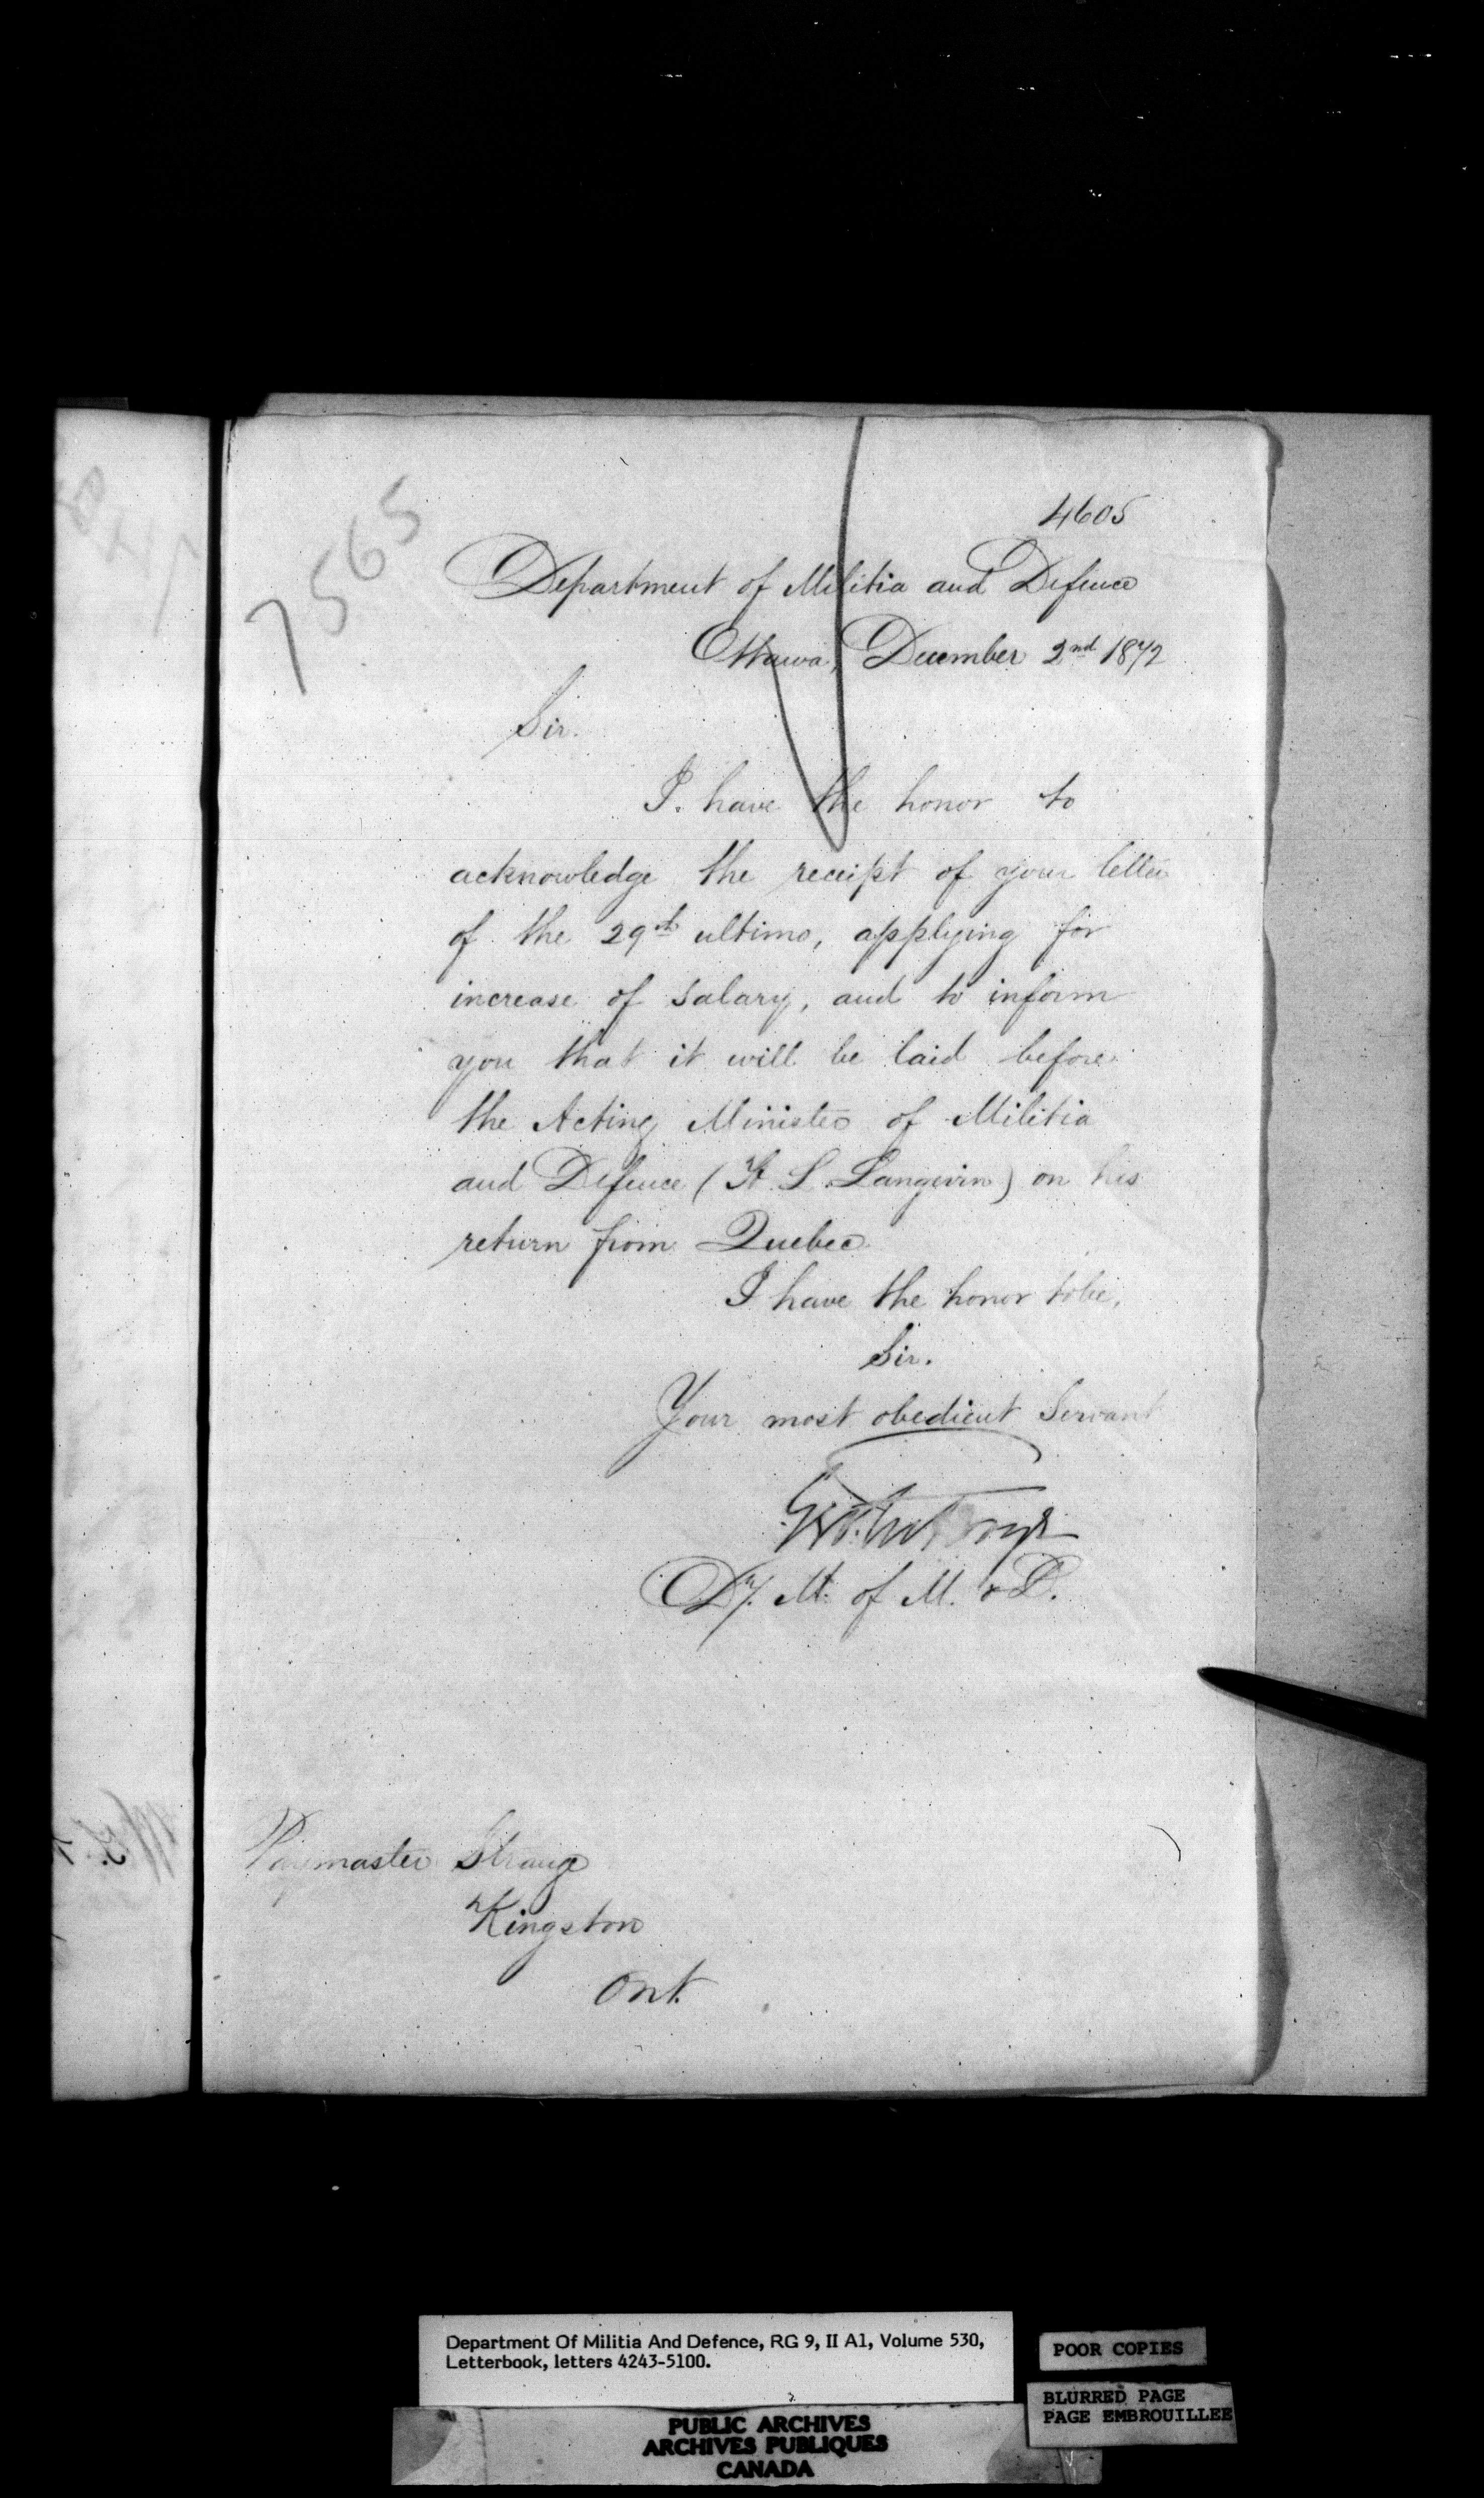 7565
4605
Department of Militia and Defence
Ottawa, December 2nd 1872
Sir.
I have the honor to
acknowledge the receipt of your letter
of the 29th ultimo, applying for
increase of salary, and to inform
you that it will be laid before
the Acting Minister of Militia
and Defence (H. L. Langevin) on his
return from Quebec
I have the honor to be,
Sir.
Your most obedient Servant
Dy. M. of M. & D.
Paymaster Strange
Kingston
Ont.
Department Of Militia And Defence, RG 9, II A1, Volume 530,
Letterbook, letters 4243-5100.
POOR COPIES
BLURRED PAGE
PAGE EMBROUILLEE
PUBLIC ARCHIVES
ARCHIVES PUBLIQUES
CANADA